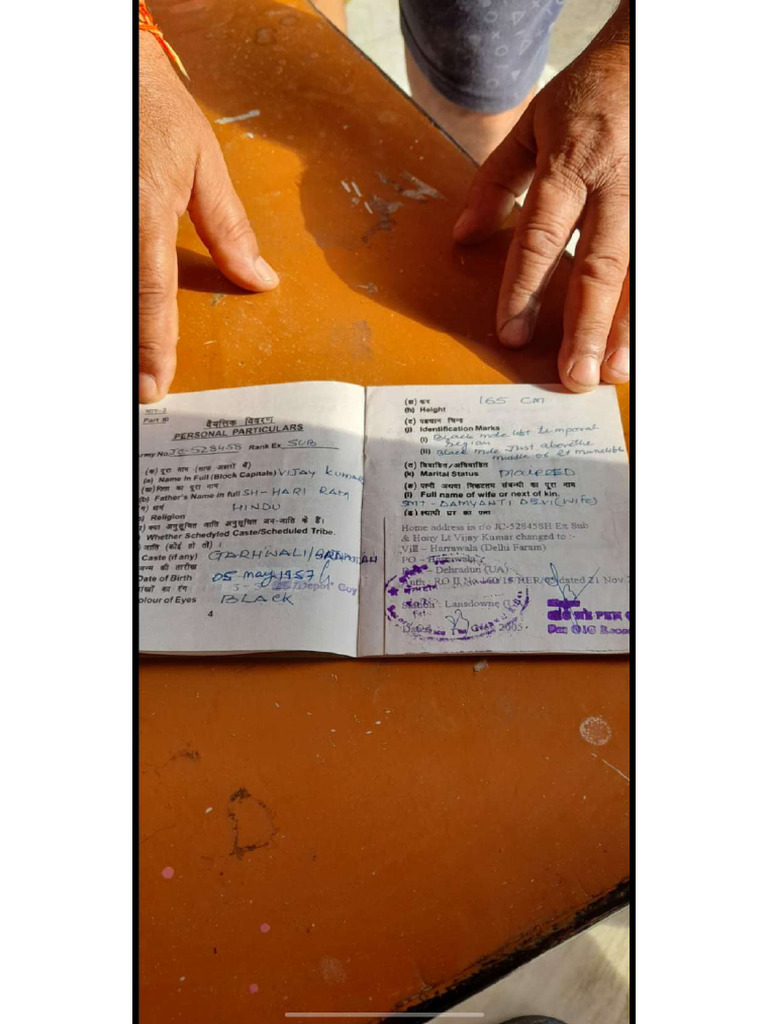 भाग-2
Part II
वैयक्तिक विवरण
PERSONAL PARTICULARS
rmy No. JC-528458 Rank Ex SUB
(क) पूरा नाम (साफ अक्षरों में)
(a) Name In Full (Block Capitals) VIJAY KUMAR
(ख) पिता का पूरा नाम
(b) Father's Name in full SH-HARI RAM
(ग) धर्म
Religion HINDU
क्या अनुसूचित जाति अनुसूचित जन-जाति के हैं।
Whether Schedyled Caste/Scheduled Tribe.
जाति (कोई हो तो) ।
Caste (if any) GARHWALI/
जन्म की तारीख
Date of Birth 05 may 1957
आंखों का रंग
olour of Eyes BLACK
4
कद 165 CM
(h) Height
पहचान चिन्ह
(j) Identification Marks
(i) Black mole left temporal
region
(ii) Black mole Just above the
middle of Lt Mandible
विवाहित/अविवाहित
(k) Marital Status MARRIED
पत्नी अथवा निकटतम संबन्धी का पूरा नाम
(l) Full name of wife or next of kin.
SMT-DAMYANTI DEVI (Wife)
स्थायी घर का पता
Home address in r/o JC-528458H Ex Sub
& Hony Lt Vijay Kumar changed to :-
Vill – Harrawala (Delhi Faram)
PO – Harrawala
– Dehradun (UA)
Auth : RO II No dated 21 Nov
Station : Lansdowne
2005